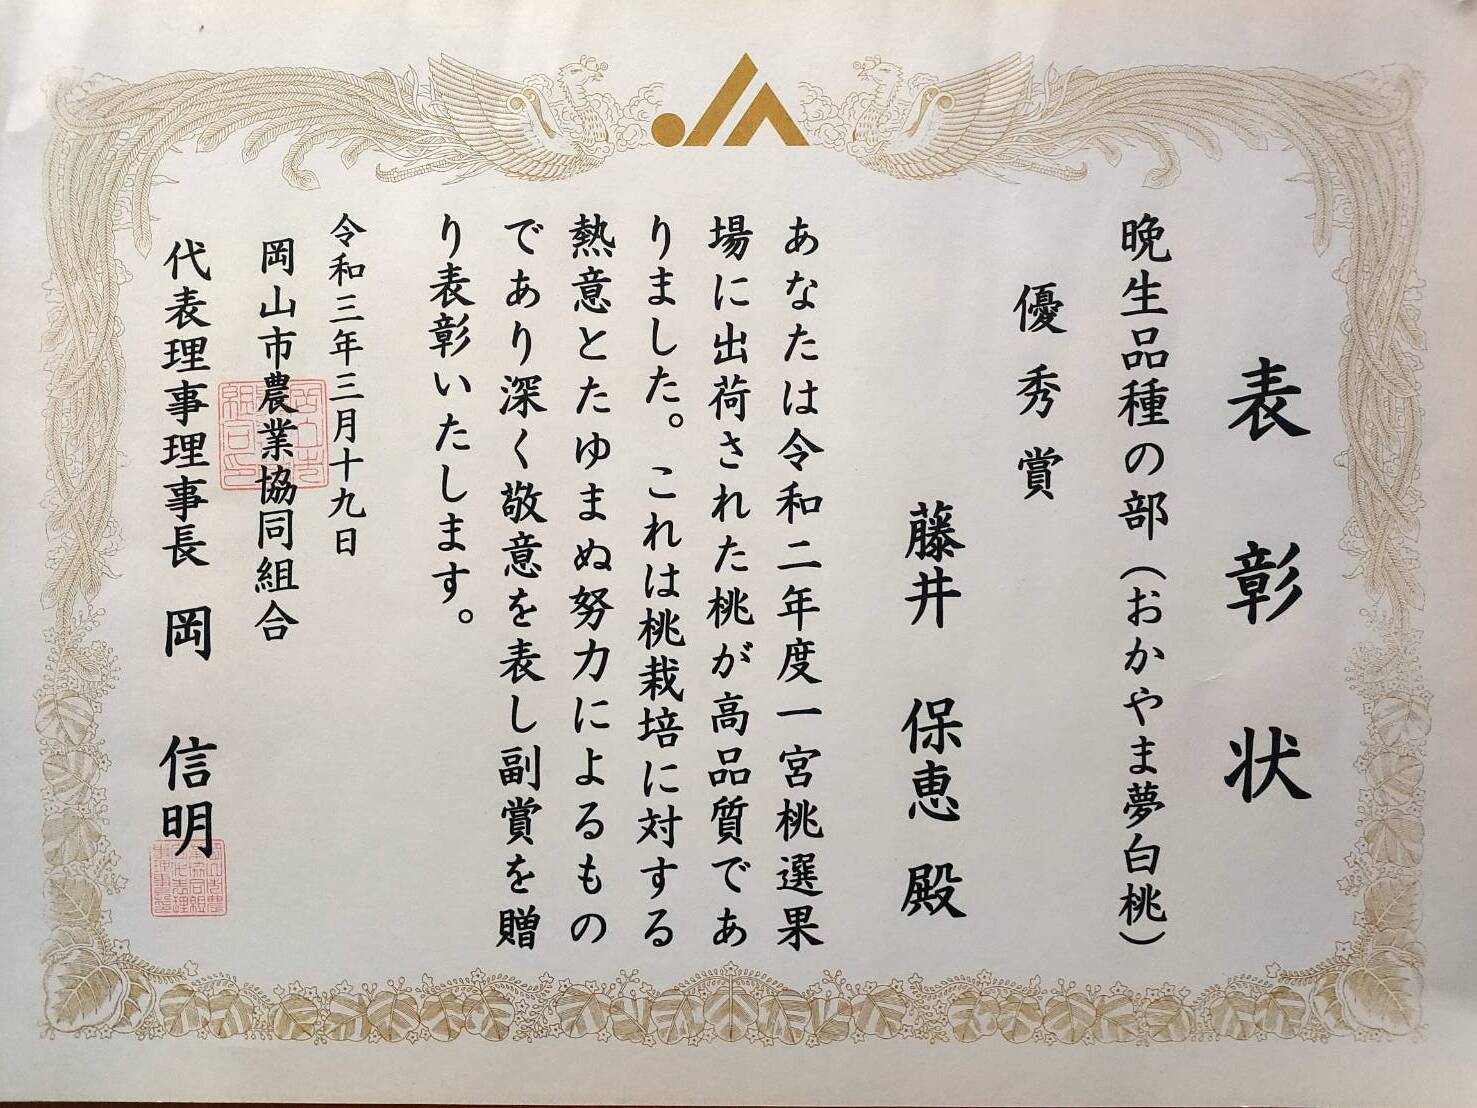 表彰状
晩生品種の部（おかやま夢白桃）
優秀賞
藤井　保恵　殿
あなたは令和二年度一宮桃選果
場に出荷された桃が高品質であ
りました。これは桃栽培に対する
熱意とたゆまぬ努力によるもの
であり深く敬意を表し副賞を贈
り表彰いたします。
令和三年三月十九日
岡山市農業協同組合
代表理事理事長　岡　信明
JA